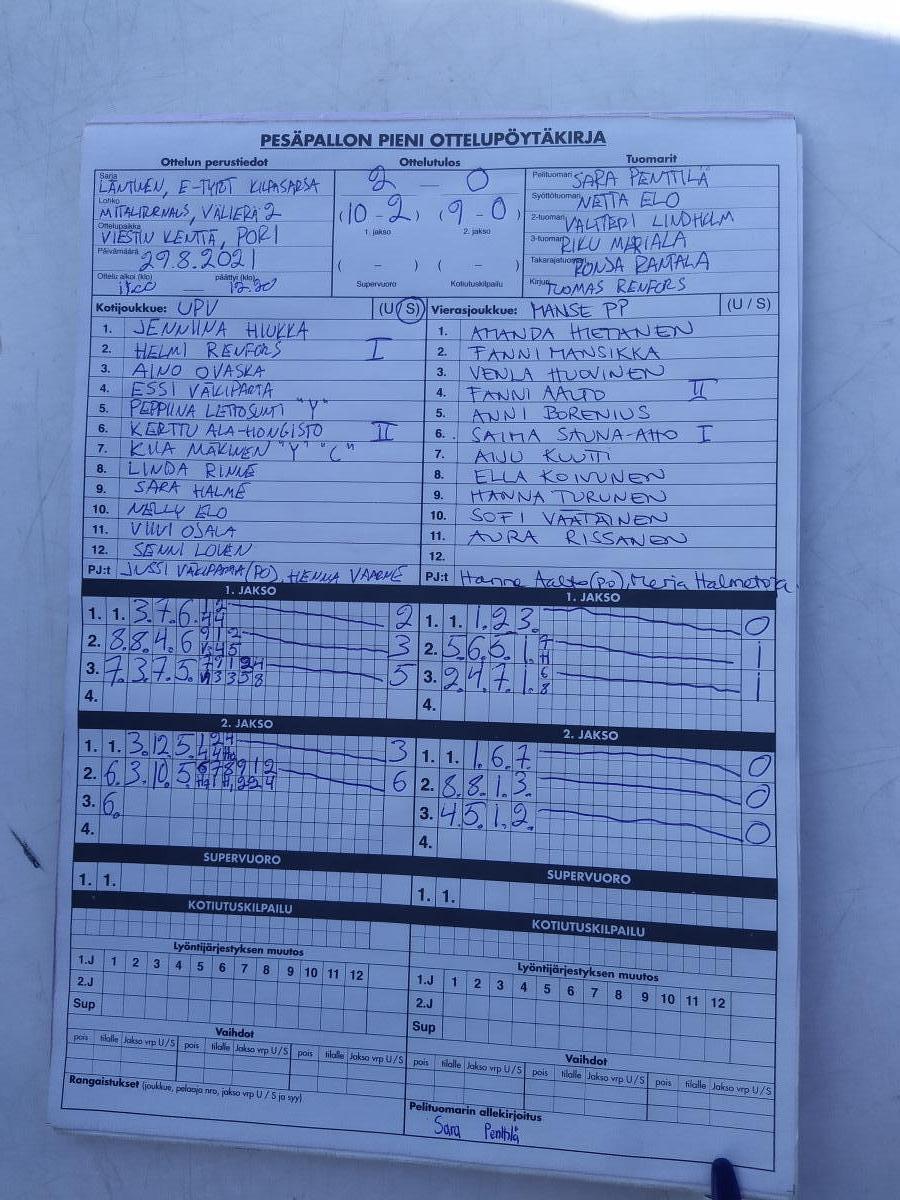 PESÄPALLON PIENI OTTELUPÖYTÄKIRJA
Ottelun perustiedot
Sarja
LÄNTINEN, E-TYTÖT KILPASARJA
Lohko
MITALITURNAUS, VÄLIERÄ 2
Ottelupaikka
VIESTIN KENTTÄ, PORI
Päivämäärä
29.8.2021
Ottelu alkoi (klo) päättyi (klo)
— 12.20
Ottelutulos
2 — 0
(10 - 2) (9 - 0)
1. jakso 2. jakso
( - ) ( - )
Supervuoro Kotiutuskilpailu
Tuomarit
Pelituomari SARA PENTTILÄ
Syöttötuomari NETTA ELO
2-tuomari VALTTERI LINDHOLM
3-tuomari RIKU MARIALA
Takarajatuomari RONJA RANTALA
Kirjuri TUOMAS RENFORS
Kotijoukkue: UPV (U/S)
1. JENNIINA HIUKKA
2. HELMI RENFORS I
3. AINO OVASKA
4. ESSI VÄLIPAKKA
5. PEPPIINA LEHTOSUNTI "Y"
6. KERTTU ALA-HONGISTO II
7. KIIA MÄKINEN "Y" "C"
8. LINDA RINNE
9. SARA HALME
10. NELLY ELO
11. VIIVI OSALA
12. SENNI LOVEN
PJ:t JUSSI (PO), HENNA
Vierasjoukkue: MANSE PP (U / S)
1. AMANDA HIETANEN
2. FANNI MANSIKKA
3. VENLA HUOVINEN
4. FANNI AALTO II
5. ANNI BORENIUS
6. SAIMA SAUNA-AHO I
7. AINU KUUTTI
8. ELLA KOIVUNEN
9. HANNA TURUNEN
10. SOFI VÄÄTÄINEN
11. AURA RISSANEN
12.
PJ:t Hanne Aalto (PO), Merja Halmetoja
1. JAKSO
1. 1. 3. 7. 6. 2
2. 8. 8. 4. 6 3
3. 7. 3. 7. 5. 5
4.
1. JAKSO
1. 1. 1. 2 3. 0
2. 5 6. 5. 1. 1
3. 2. 4 7. 1. 1
4.
2. JAKSO
1. 1. 3. 12. 5. 3
2. 6. 3. 10. 5 6
3. 6.
4.
2. JAKSO
1. 1. 1. 6. 7. 0
2. 8. 8. 1. 3. 0
3. 4. 5. 1. 2. 0
4.
SUPERVUORO
1. 1.
SUPERVUORO
1. 1.
KOTIUTUSKILPAILU
KOTIUTUSKILPAILU
Lyöntijärjestyksen muutos
1.J 1 2 3 4 5 6 7 8 9 10 11 12
2.J
Sup
Lyöntijärjestyksen muutos
1.J 1 2 3 4 5 6 7 8 9 10 11 12
2.J
Sup
Vaihdot
pois tilalle Jakso vrp U / S pois tilalle Jakso vrp U / S pois tilalle Jakso vrp U / S
Vaihdot
pois tilalle Jakso vrp U / S pois tilalle Jakso vrp U / S pois tilalle Jakso vrp U / S
Rangaistukset (joukkue, pelaaja nro, jakso vrp U / S ja syy)
Pelituomarin allekirjoitus
Sara Penttilä